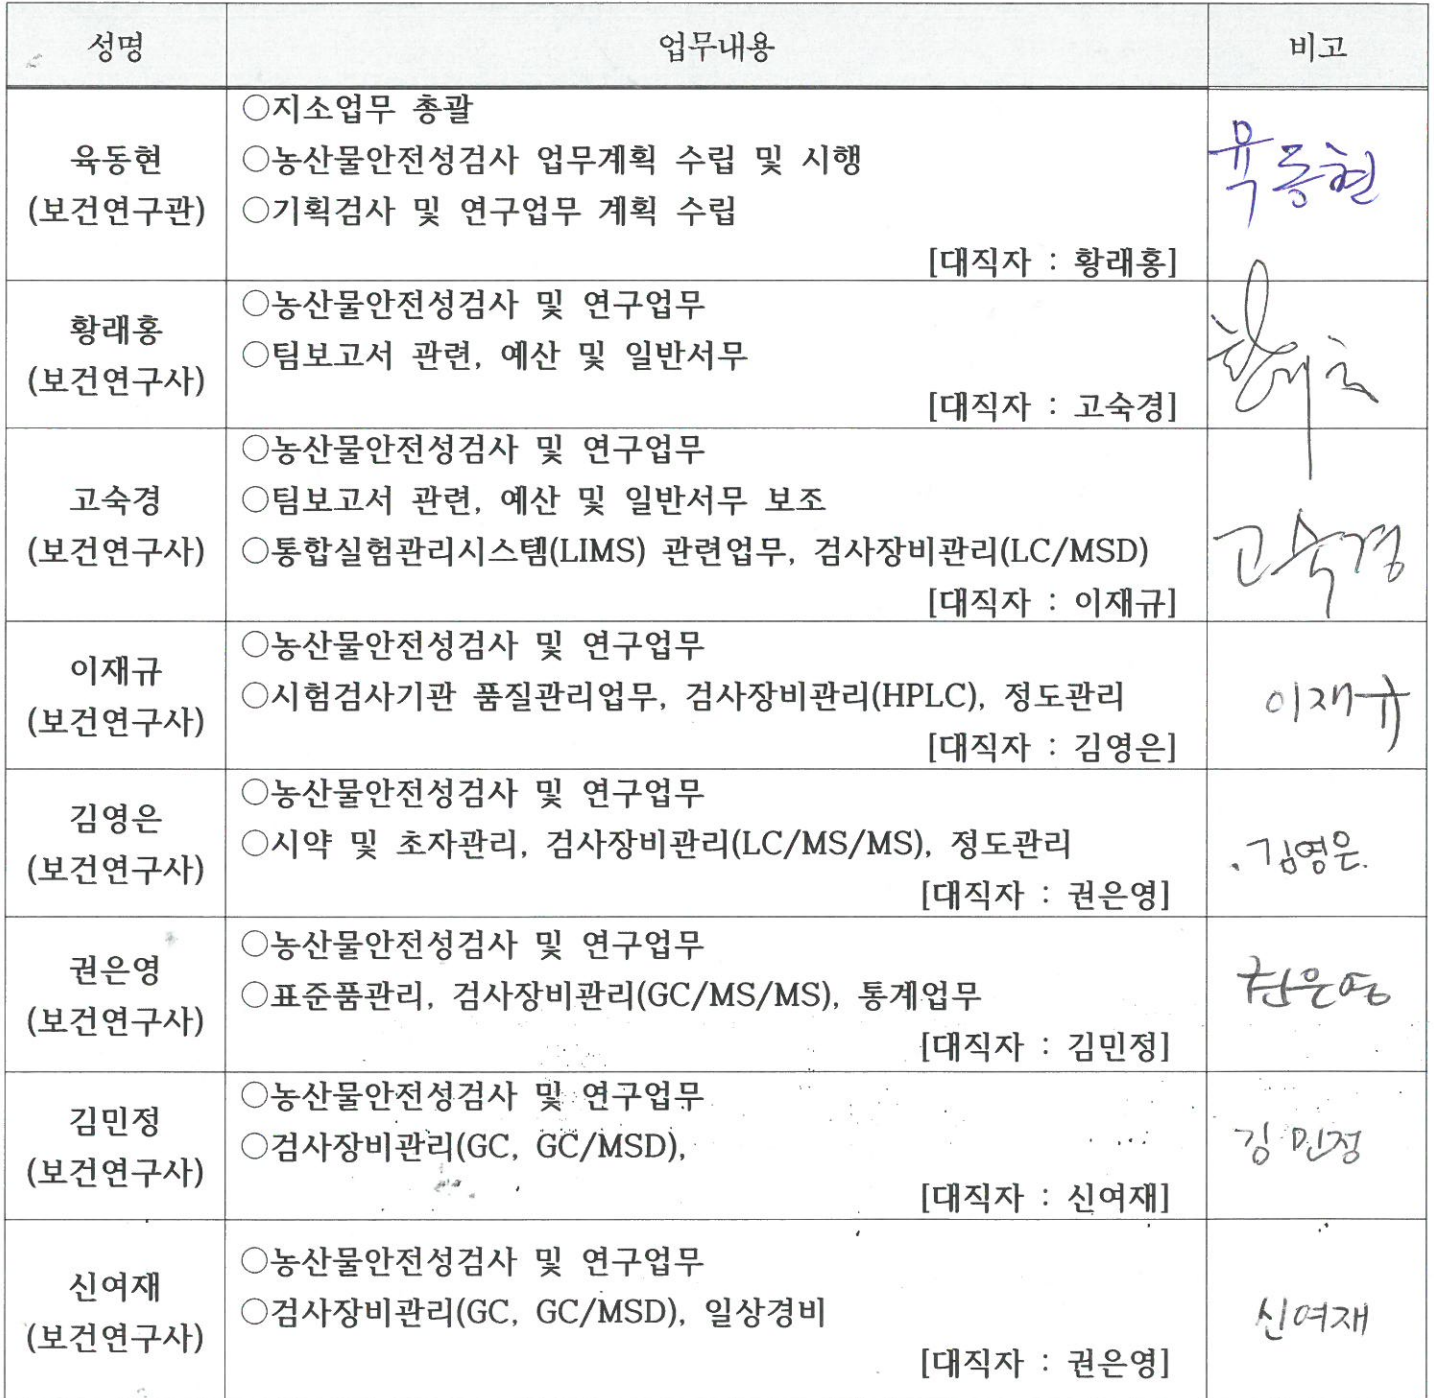 성명 업무내용 비고
육동현
(보건연구관)
○지소업무 총괄
○농산물안전성검사 업무계획 수립 및 시행
○기획검사 및 연구업무 계획 수립
[대직자 : 황래홍]
육동현
황래홍
(보건연구사)
○농산물안전성검사 및 연구업무
○팀보고서 관련, 예산 및 일반서무
[대직자 : 고숙경]
황래홍
고숙경
(보건연구사)
○농산물안전성검사 및 연구업무
○팀보고서 관련, 예산 및 일반서무 보조
○통합실험관리시스템(LIMS) 관련업무, 검사장비관리(LC/MSD)
[대직자 : 이재규]
고숙경
이재규
(보건연구사)
○농산물안전성검사 및 연구업무
○시험검사기관 품질관리업무, 검사장비관리(HPLC), 정도관리
[대직자 : 김영은]
이재규
김영은
(보건연구사)
○농산물안전성검사 및 연구업무
○시약 및 초자관리, 검사장비관리(LC/MS/MS), 정도관리
[대직자 : 권은영]
김영은.
권은영
(보건연구사)
○농산물안전성검사 및 연구업무
○표준품관리, 검사장비관리(GC/MS/MS), 통계업무
[대직자 : 김민정]
권은영
김민정
(보건연구사)
○농산물안전성검사 및 연구업무
○검사장비관리(GC, GC/MSD),
[대직자 : 신여재]
김민정
신여재
(보건연구사)
○농산물안전성검사 및 연구업무
○검사장비관리(GC, GC/MSD), 일상경비
[대직자 : 권은영]
신여재